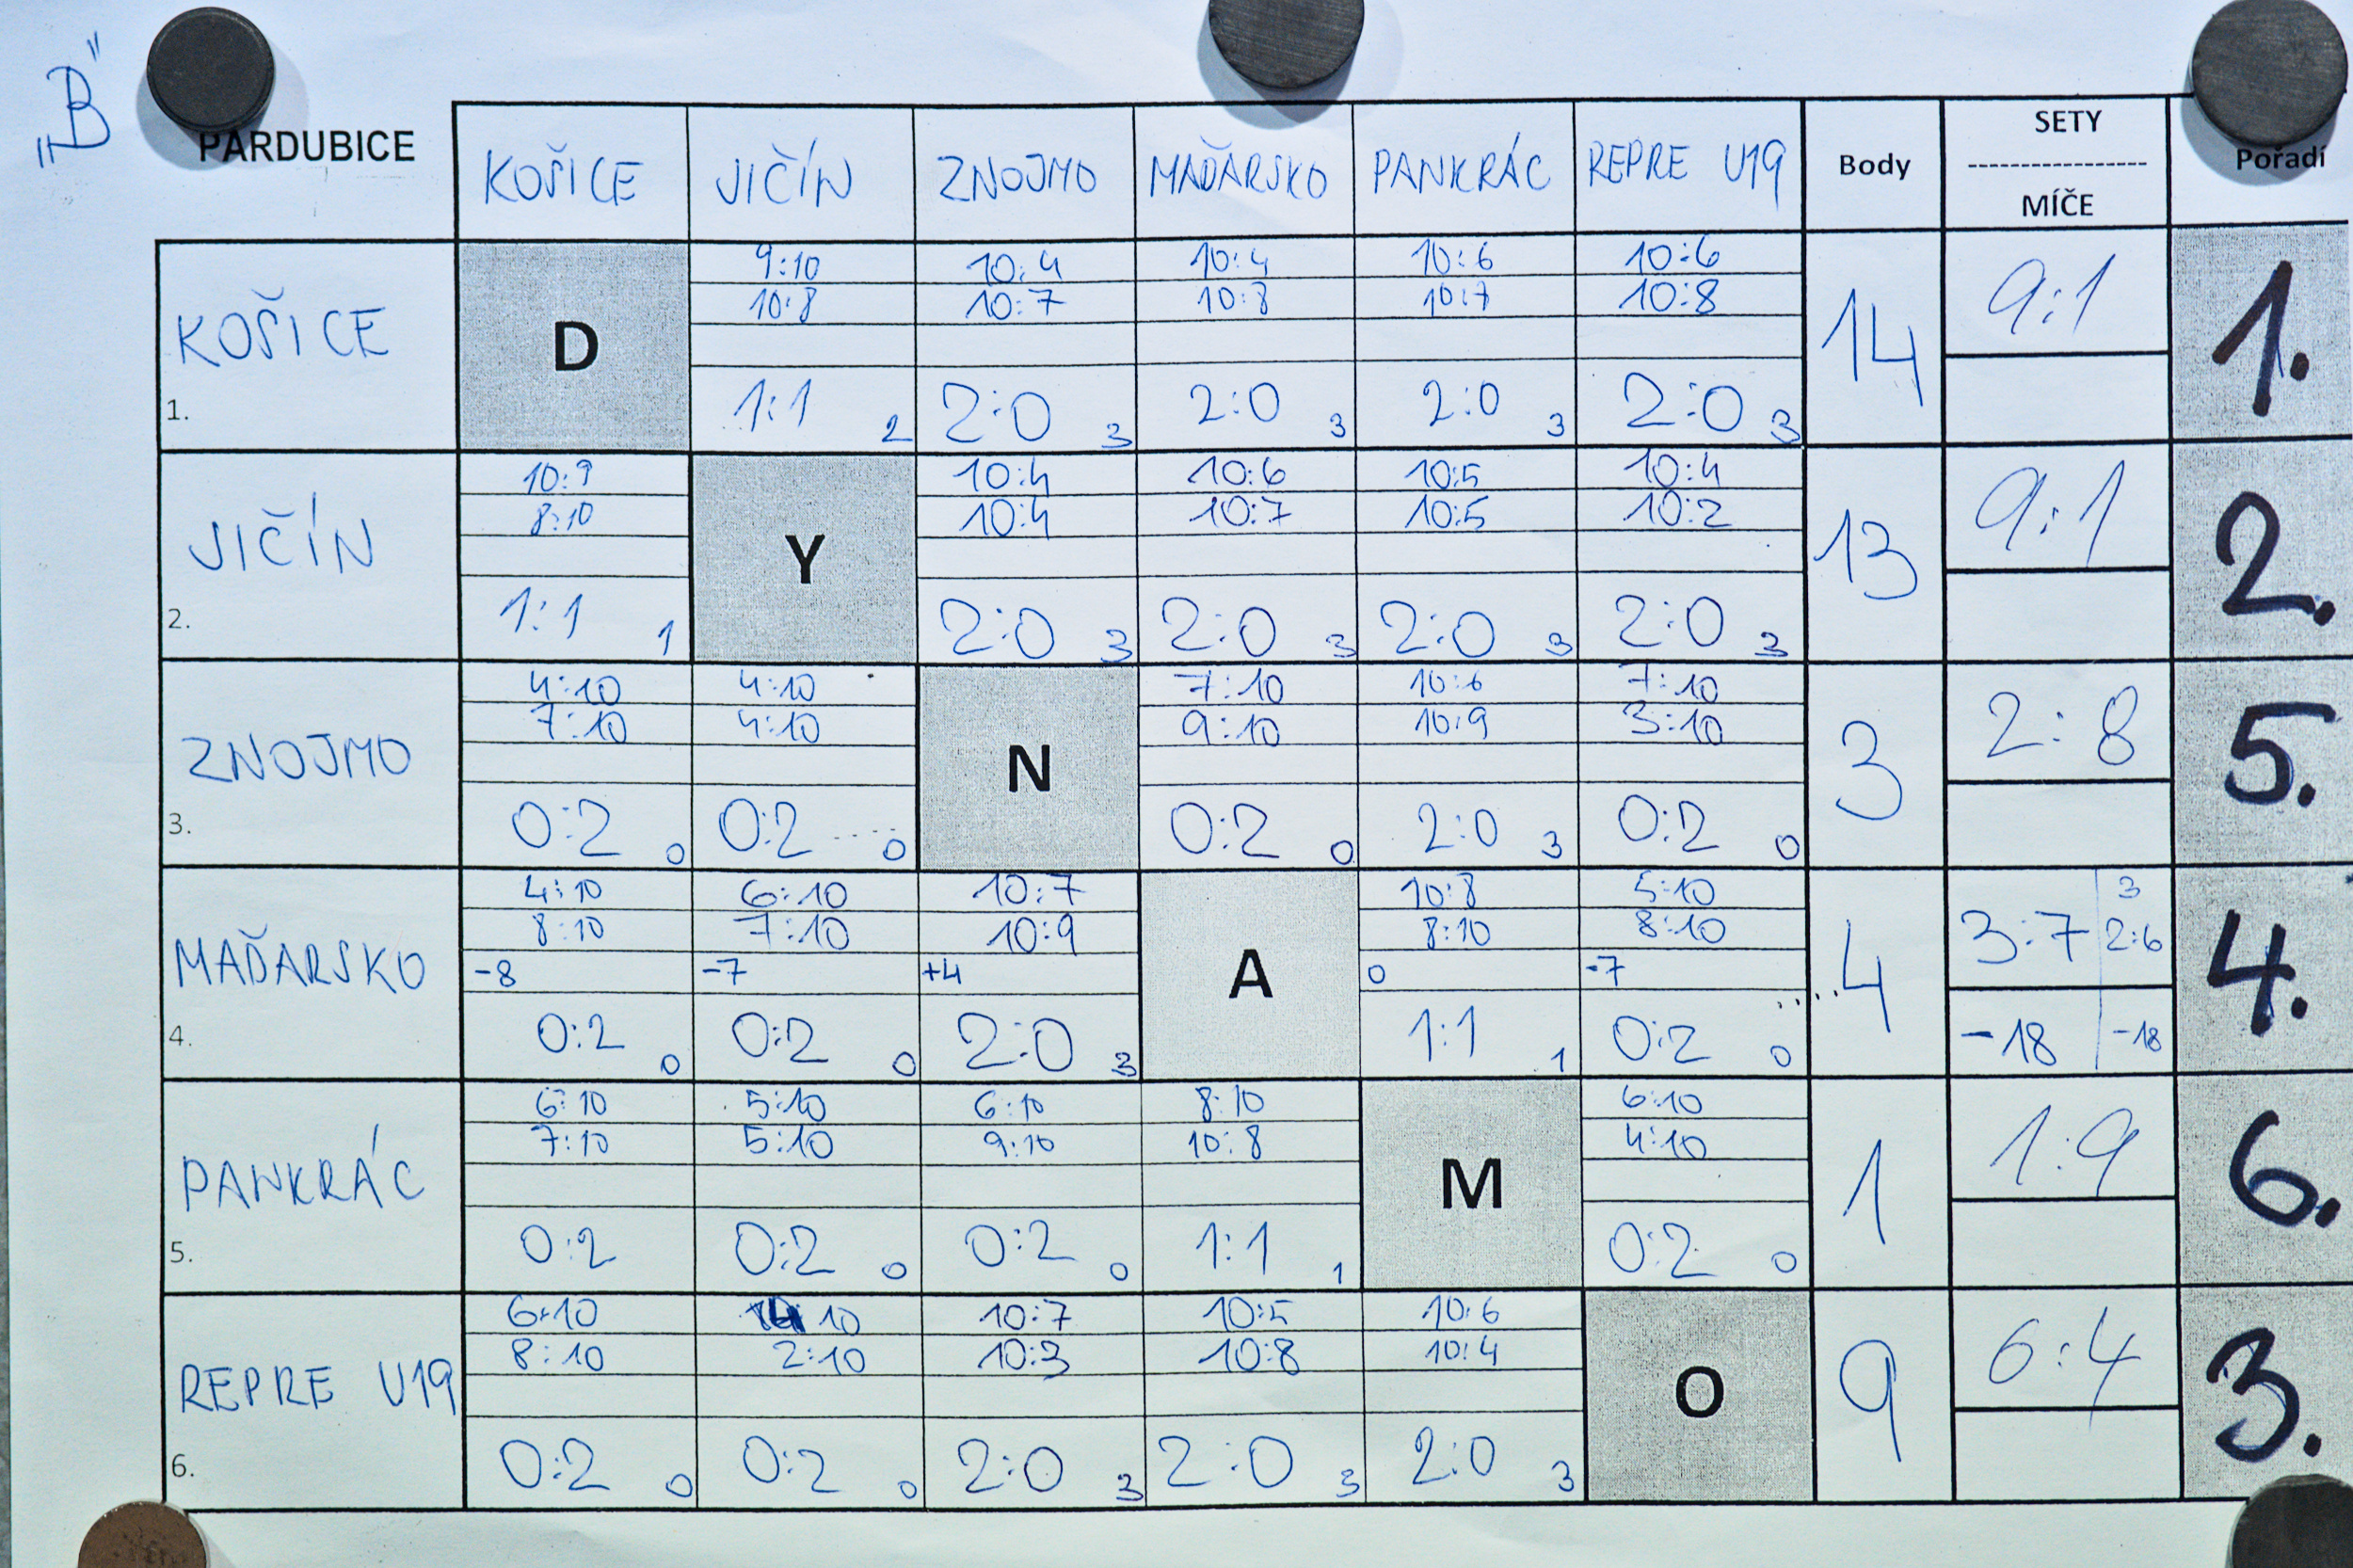 „B“
PARDUBICE
KOŠICE JIČÍN ZNOJMO MAĎARSKO PANKRÁC REPRE U19 Body SETY Pořadí
MÍČE
KOŠICE
1.
D
9:10 10:4 10:4 10:6 10:6
10:8 10:7 10:8 10:7 10:8
1:1 2 2:0 3 2:0 3 2:0 3 2:0 3
14 9:1 1.
JIČÍN
2.
10:9 Y 10:4 10:6 10:5 10:4
8:10 10:4 10:7 10:5 10:2
1:1 1 2:0 3 2:0 3 2:0 3 2:0 3
13 9:1 2.
ZNOJMO
3.
4:10 4:10 N 7:10 10:6 7:10
7:10 4:10 9:10 10:9 3:10
0:2 0 0:2 0 0:2 0 2:0 3 0:2 0
3 2:8 5.
MAĎARSKO
4.
4:10 6:10 10:7 A 10:8 5:10
8:10 7:10 10:9 8:10 8:10
-8 -7 +4 0 -7
0:2 0 0:2 0 2:0 3 1:1 1 0:2 0
4 3:7 3 2:6 4.
-18 -18
PANKRÁC
5.
6:10 5:10 6:10 8:10 M 6:10
7:10 5:10 9:10 10:8 4:10
0:2 0:2 0 0:2 0 1:1 1 0:2 0
1 1:9 6.
REPRE U19
6.
6:10 4:10 10:7 10:5 10:6 O
8:10 2:10 10:3 10:8 10:4
0:2 0 0:2 0 2:0 3 2:0 3 2:0 3
9 6:4 3.